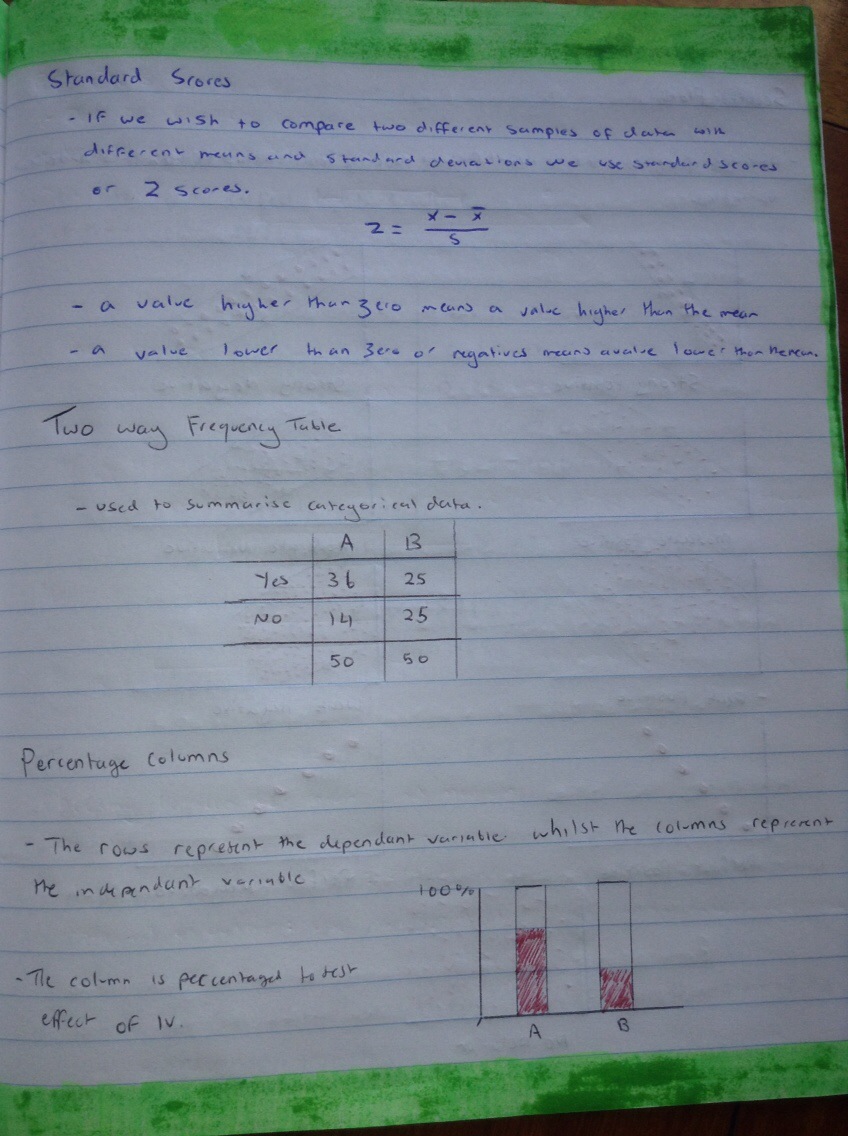 Standard Scores
- IF we wish to compare two different samples of data with
different means and standard deviations we use standard scores
or Z scores.
z = x - x̄
s
- a value higher than zero means a value higher than the mean
- a value lower than zero or negatives means a value lower than the mean.
Two way Frequency Table
- used to summarise categorical data.
A B
Yes 36 25
No 14 25
50 50
Percentage Columns
- The rows represent the dependant variable. whilst the columns represent
the independant variable
100%
- The column is percentaged to test
effect of IV.
A B